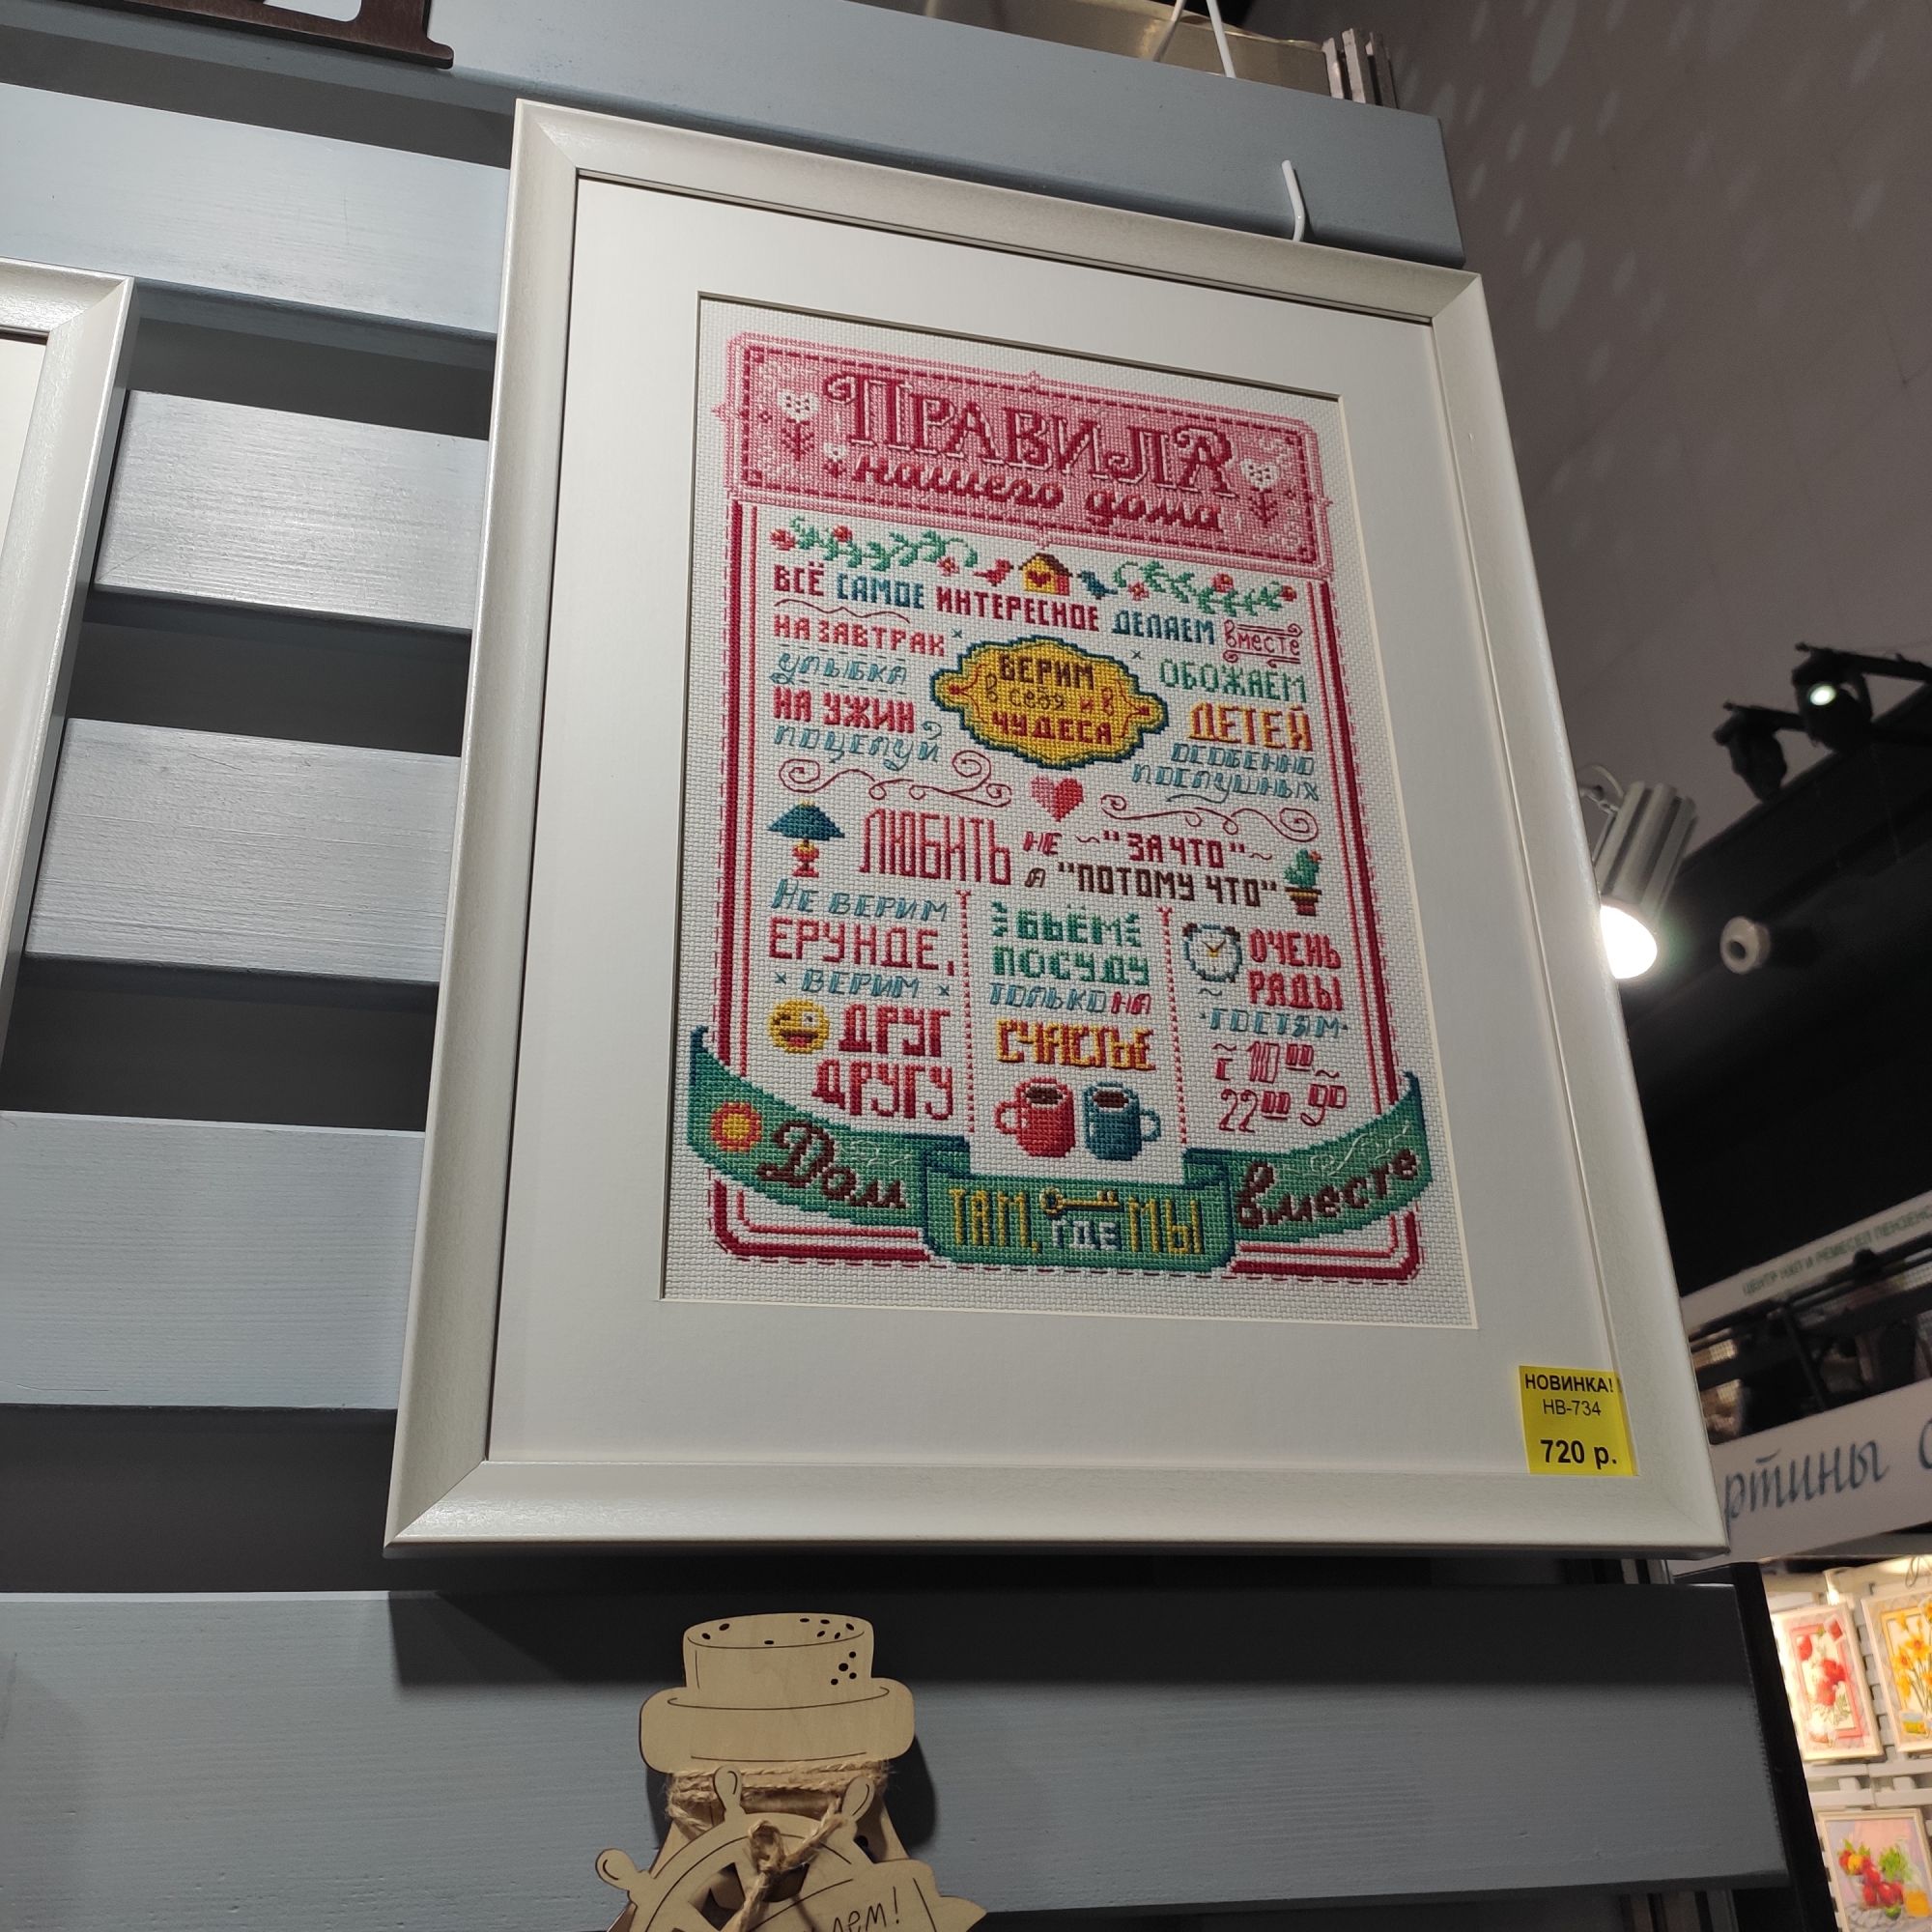 ПРАВИЛА
нашего дома
ВСЁ САМОЕ ИНТЕРЕСНОЕ ДЕЛАЕМ вместе
НА ЗАВТРАК
улыбка
НА УЖИН
поцелуй
ВЕРИМ
в себя и в
ЧУДЕСА
ОБОЖАЕМ
ДЕТЕЙ
ОСОБЕННО
ПОСЛУШНЫХ
ЛЮБИТЬ НЕ "ЗА ЧТО"
А "ПОТОМУ ЧТО"
НЕ ВЕРИМ
ЕРУНДЕ,
ВЕРИМ
ДРУГ
ДРУГУ
БЬЁМ
ПОСУДУ
ТОЛЬКО НА
СЧАСТЬЕ
ОЧЕНЬ
РАДЫ
ГОСТЯМ
с 10⁰⁰
22⁰⁰ до
Дом
ТАМ, ГДЕ МЫ
вместе
НОВИНКА!
НВ-734
720 р.
ртины
лем!